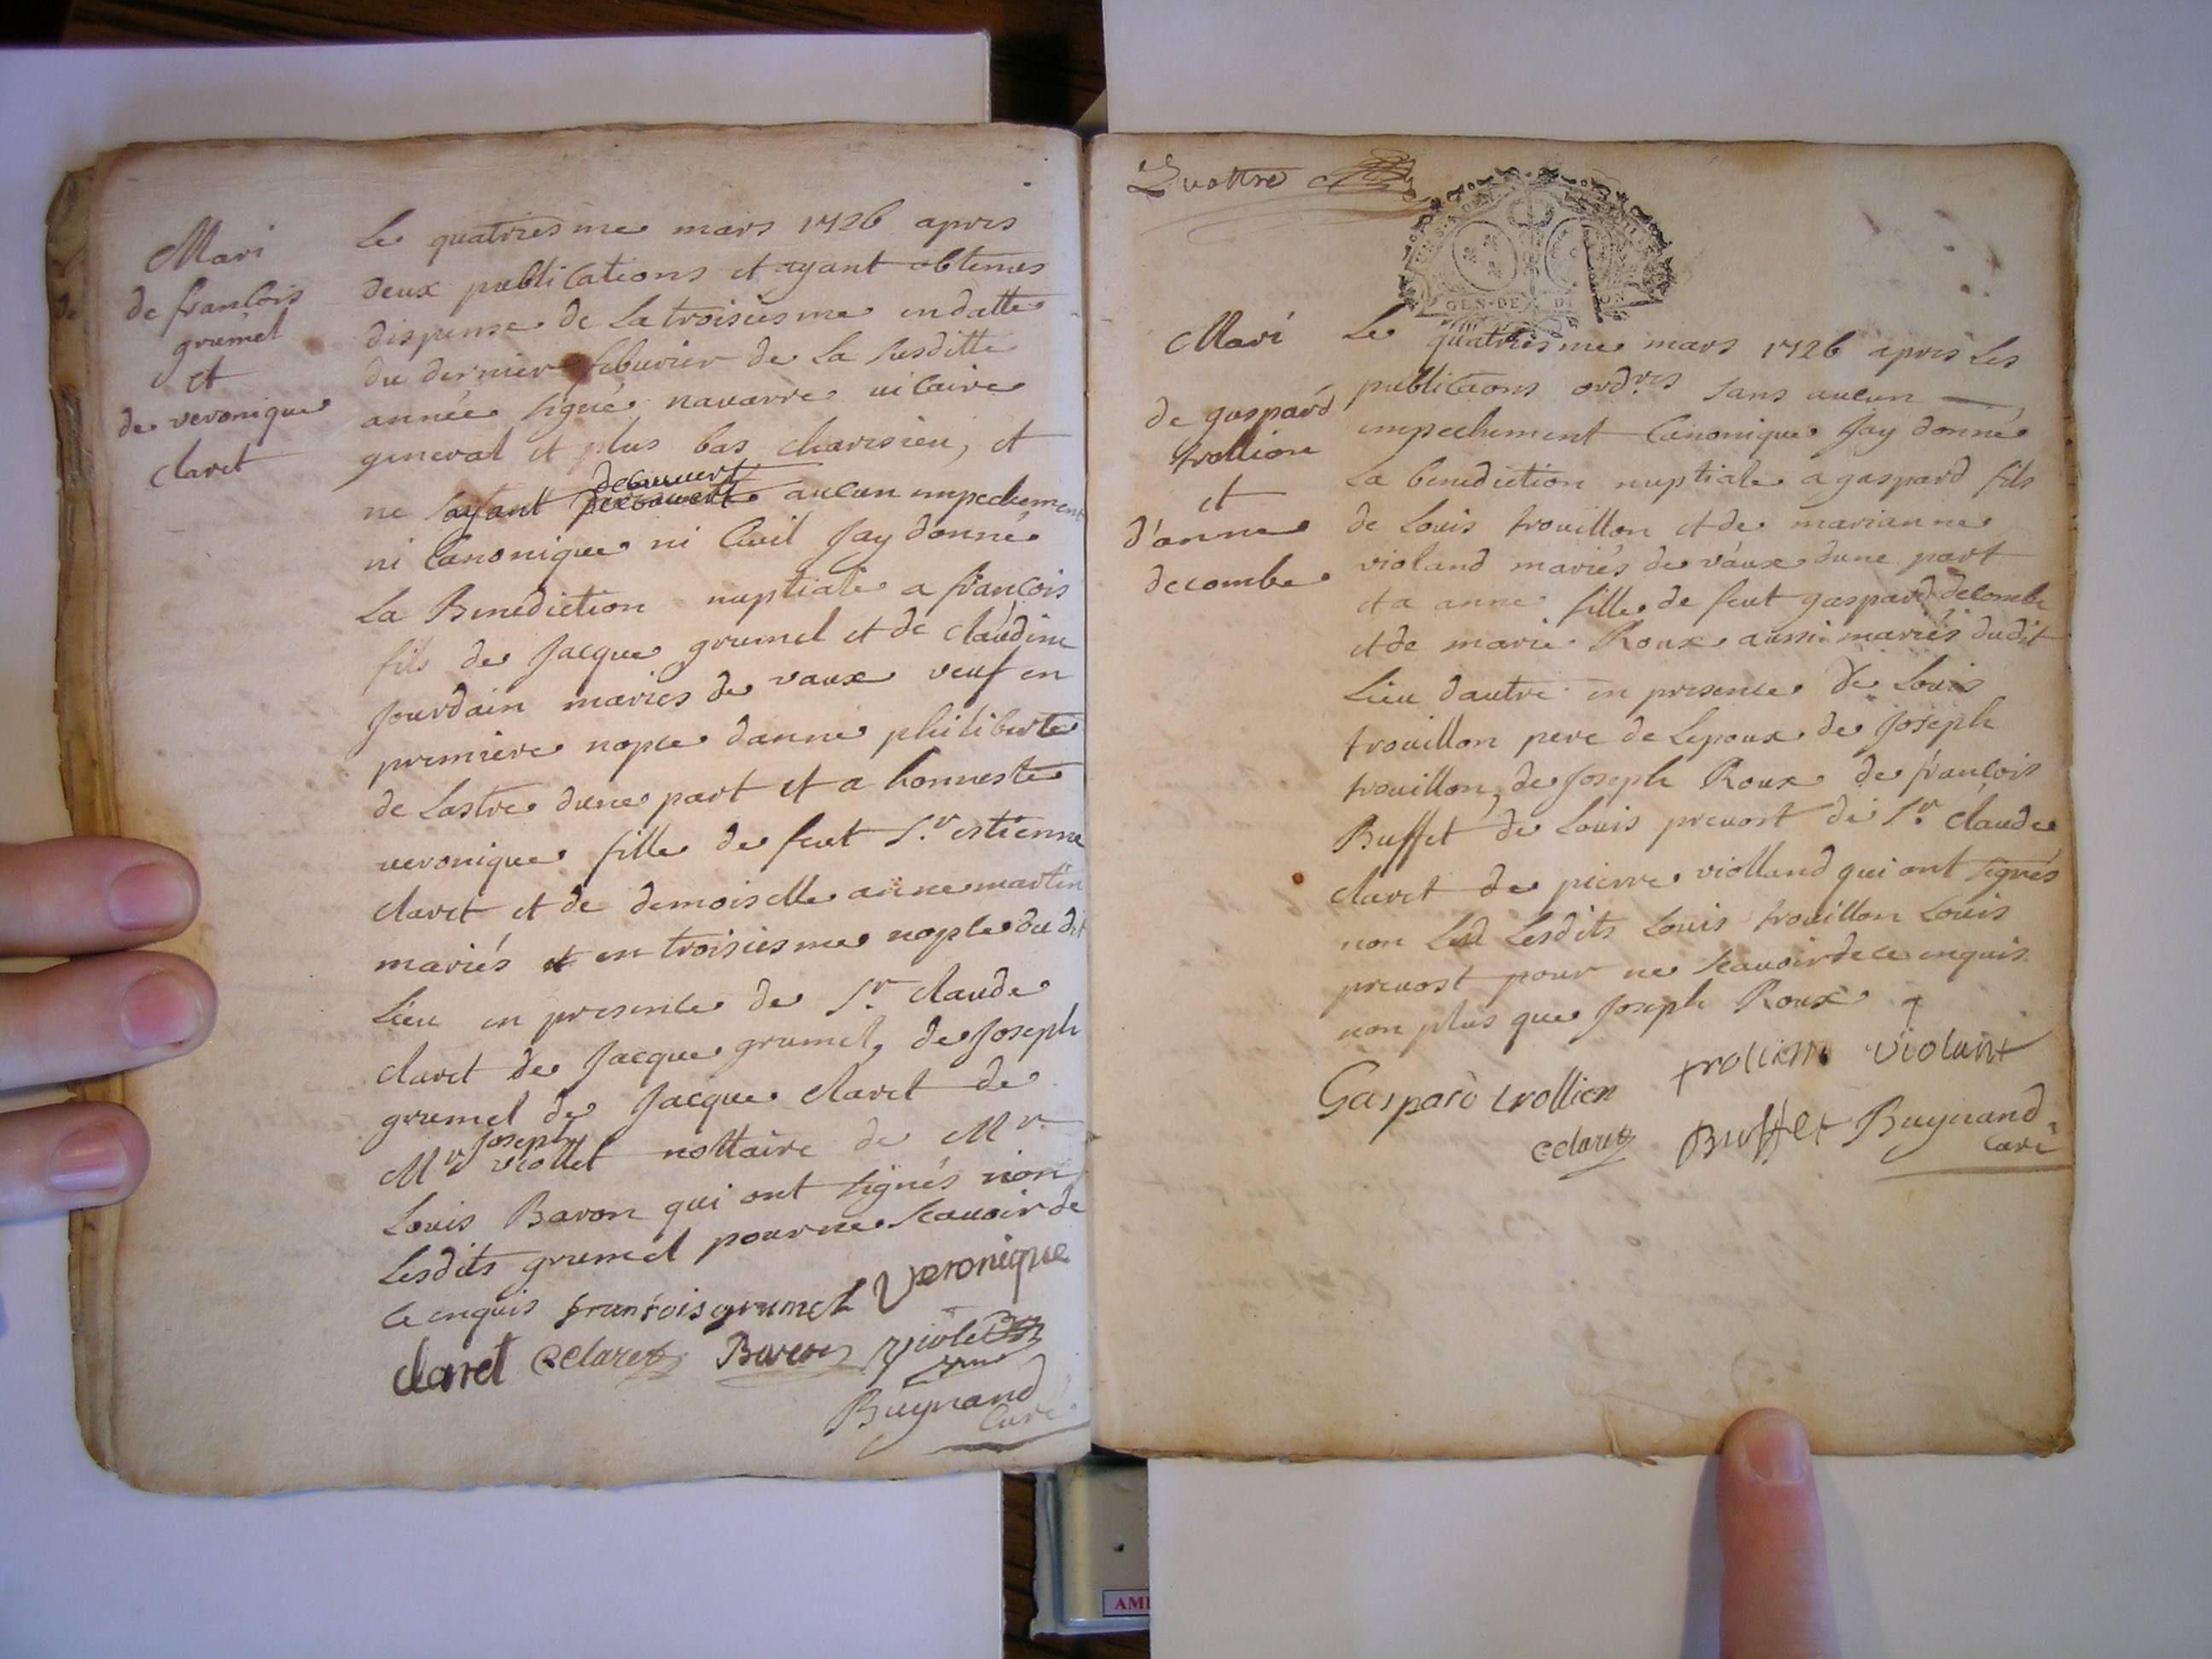 Mari
de francois
grumel
et
de veronique
claret
Le quatriesme mars 1726 apres
deux publications et ayant obtenus
dispense de La troisiesme en datte
du dernier febvrier de La susditte
année signé navarre vicaire
general et plus bas charisieu, et
decouvert
ne sayant aucun impechement
ni Canonique ni Civil Jay donné
La Benediction nuptiale a francois
fils de Jacque grumel et de claudine
Jourdain maries de vaux veuf en
premiere nopce danne philiberte
de Lastre dune part et a honneste
veronique fille de feut Sr. estienne
claret et de demoiselle anne martin
mariés en troisiesme nopce du dit
Lieu en presence de Sr. claude
claret de Jacque grumel, de Joseph
grumel de Jacque claret de
Joseph
Mr viollet nottaire de Mr.
Louis Baron qui ont signés non
Lesdits grumel pour ne scauoir de
ce enquis francois grumel Veronique
claret cclaret Baron violet
Buynand
Curé
Quattre
GEN·DE DIJON
Mari
de gaspard
trollion
et
d'anne
decombe
Le quatriesme mars 1726 apres Les
publicaons ordres sans aucun
impechement Canonique Jay donné
La benediction nuptiale a gaspard fils
de Louis trouillon et de marianne
violand mariés de vaux dune part
et a anne fille de feut gaspard decombe
et de marie Roux aussi mariés dudit
Lieu dautre en presence de Louis
trouillon pere de Lepoux de Joseph
trouillon, de Joseph Roux de francois
Buffet de Louis preuost de Sr. claude
claret de pierre violland qui ont signés
non Lesdits Louis trouillon Louis
preuost pour ne scauoir de ce enquis
non plus que Joseph Roux
Gaspard trollion trolion violant
cclaret Buffet Buynand
Curé
AMI